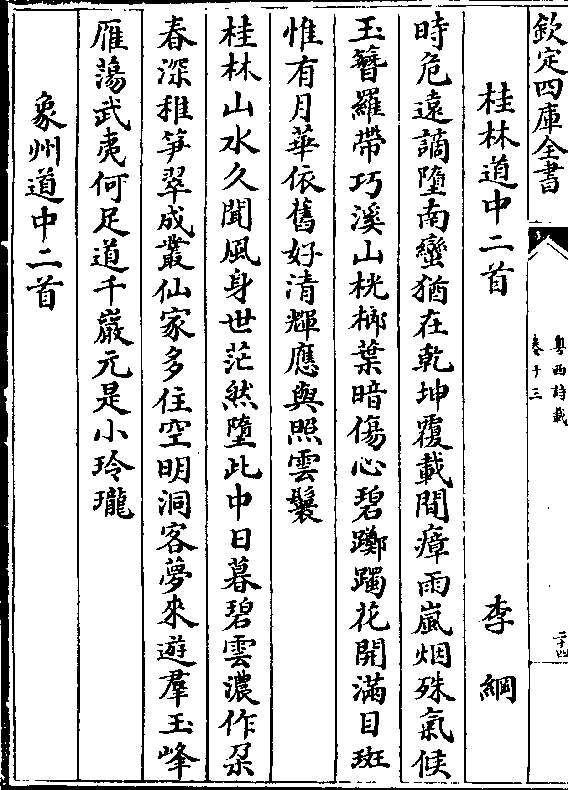 欽定四庫全書
粵西詩載
卷十三
二十四
桂林道中二首 李綱
時危遠謫墮南蠻猶在乾坤覆載間瘴雨嵐烟殊氣候
玉簪羅帶巧溪山桄榔葉暗傷心碧躑躅花開滿目斑
惟有月華依舊好清輝應與照雲鬟
桂林山水久聞風身世茫然墮此中日暮碧雲濃作朶
春深稚筍翠成叢仙家多住空明洞客夢來遊羣玉峰
雁蕩武夷何足道千巖元是小玲瓏
象州道中二首